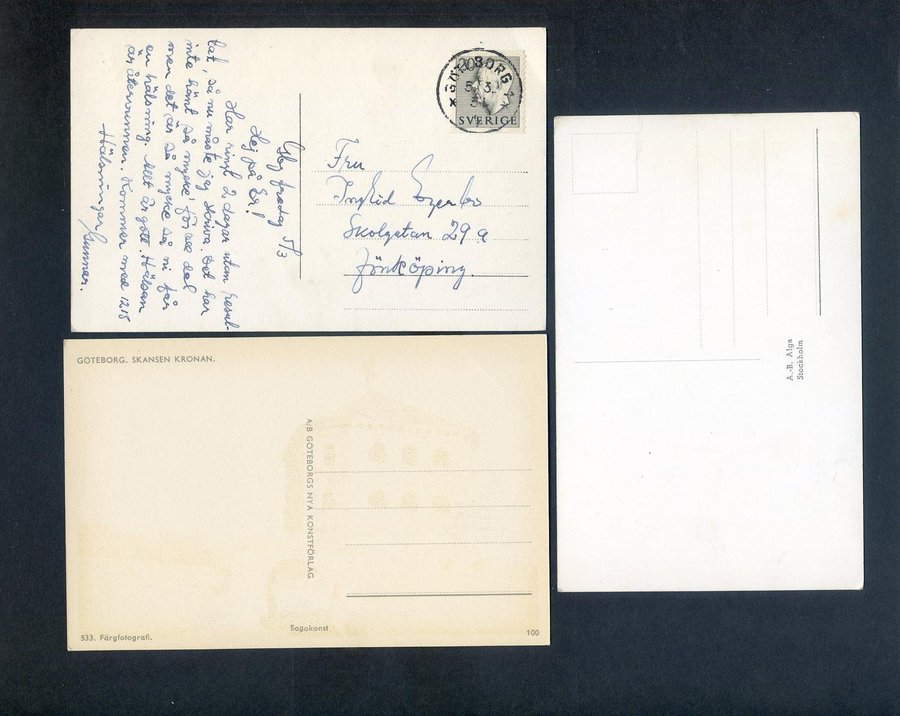 Gbg fredag 5/3
Hej på Er!
Har ringt 2 dagar utan resul-
tat, så nu måste jag skriva. Det har
inte hänt så mycke' för se'dal
men det är så mycke så ni får
en hälsning. Allt är gott. Hälsan
är återvunnen. Kommer med 1215
Hälsningar
Gunnar.
GÖTEBORG
5 3
SVERIGE
Fru
Skolgatan 29 a
Jönköping.
GÖTEBORG. SKANSEN KRONAN.
A/B GÖTEBORGS NYA KONSTFÖRLAG
533. Färgfotografi.
Sagokonst
100
A.-B. Alga
Stockholm